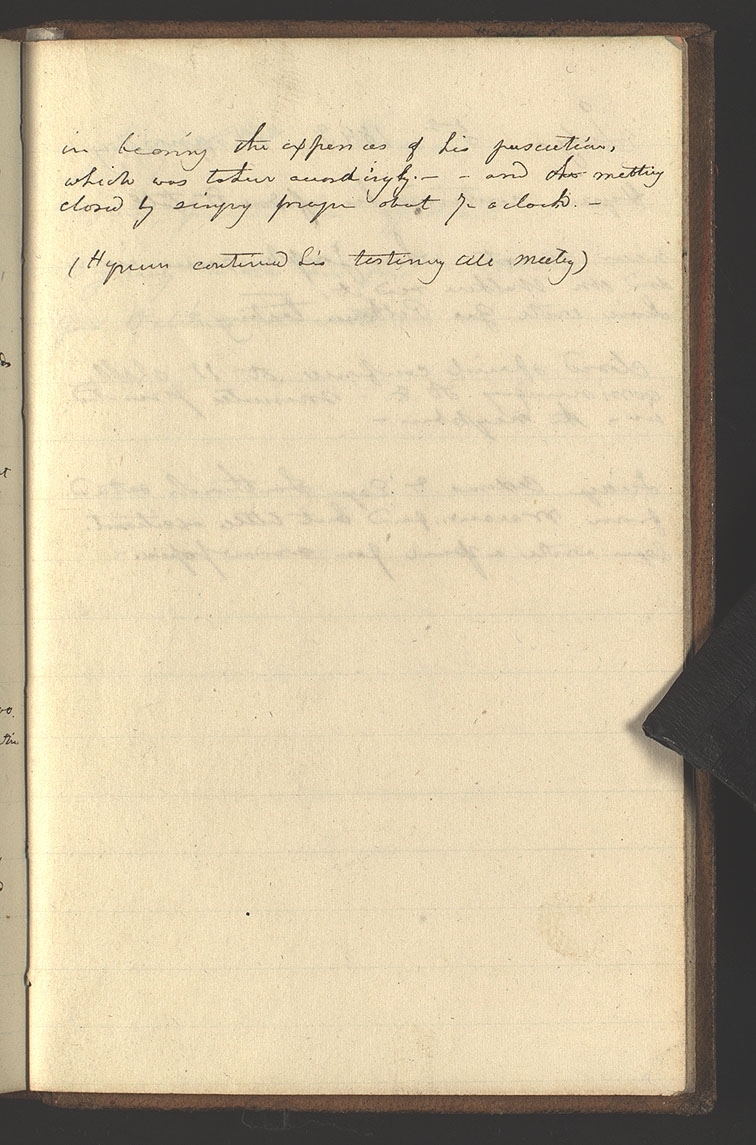 in bearing the expences of his persecution,
which was taken accordingly. — - and the meeting
closed by singing prayer about 7 oclock. —
(Hyrum continued his testimony All meeting)